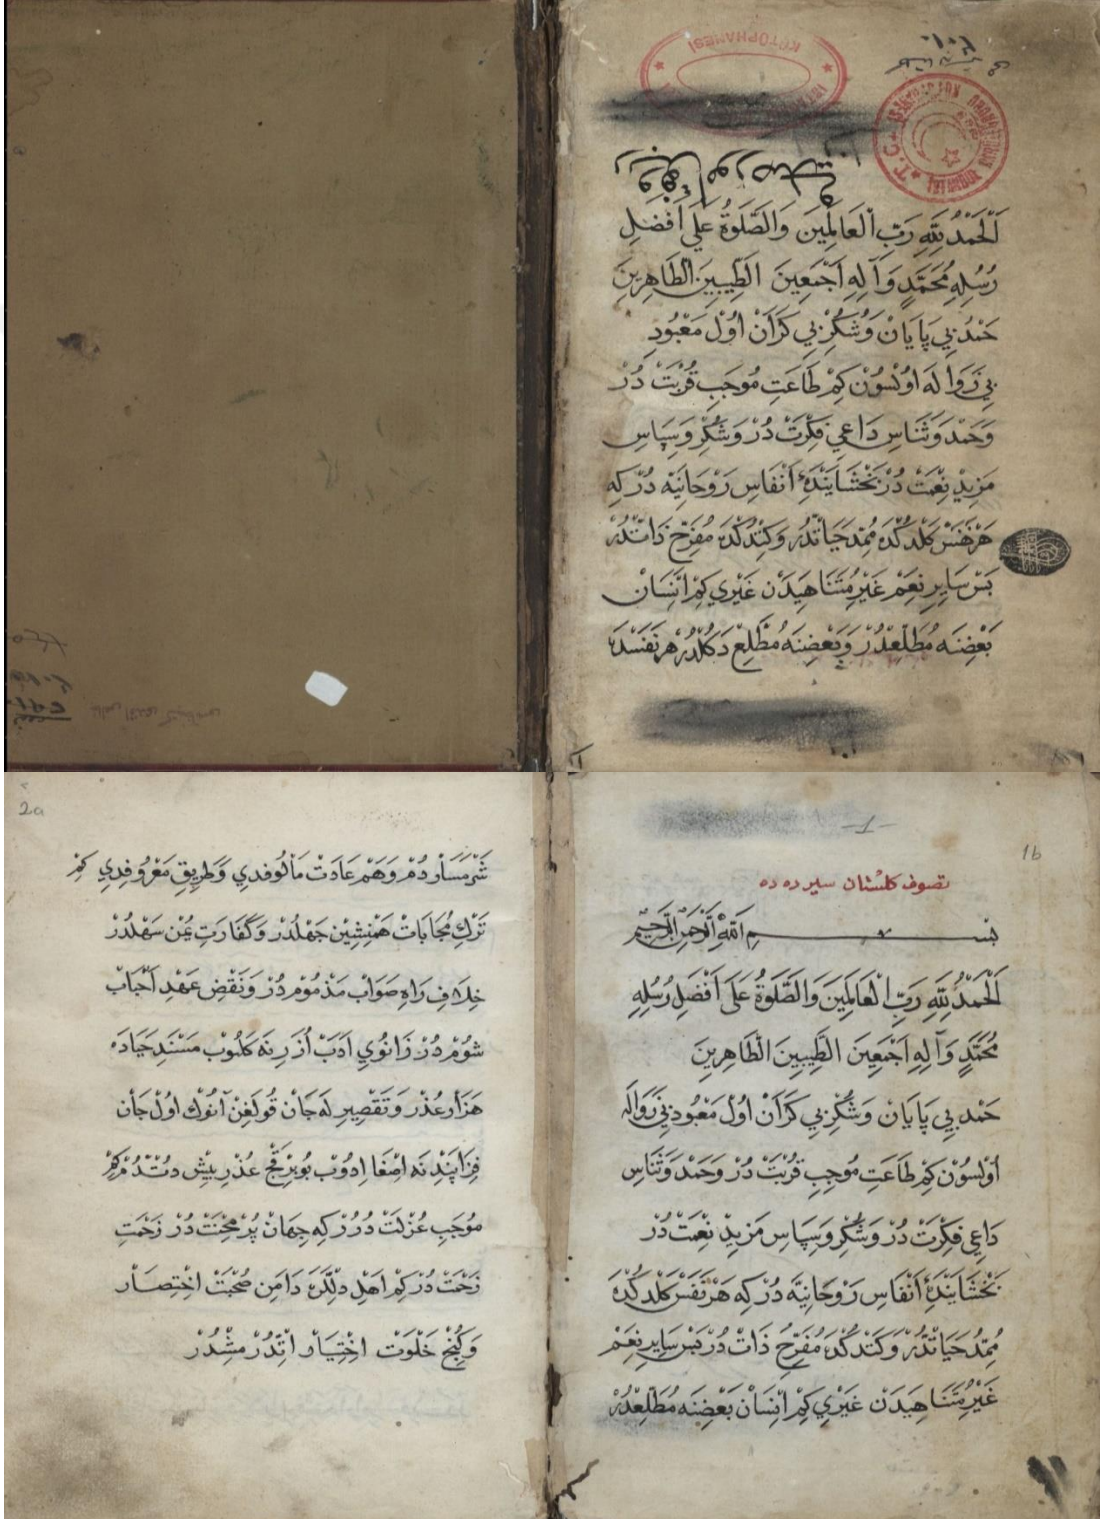 اَلْحَمْدُ لِلّٰهِ رَبِّ الْعَالَمِينَ وَالصَّلٰوةُ عَلٰي اَفْضَلِ
رُسُلِهِ مُحَمَّدٍ وَآلِهِ اَجْمَعِينَ الطَّيِّبِينَ الطَّاهِرِينَ
حَمْدِ بِي پَايَانْ وَشُكْرِ بِي كَرَانْ اُولْ مَعْبُودِ
بِي زَوَالَه اُولْسُونْ كِمْ طَاعَتِ مُوجَبِ قُرْبَتْ دُرْ
وَحَمْدِ وَثَنَاسِ دَاعِي فِكْرَتْ دُرْ وَشُكْرِ وَسِپَاسِ
مَزِيدِ نِعْمَتْ دُرْ بَخْشَايَنْدَهٔ اَنْفَاسِ رَوْحَانِيَّه دُرْ كِه
هَرْ نَفَسْ كَلْدُكْدَه مُمِدِّ حَيَاتْدُرْ وَكِتْدُكْدَه مُفَرِّحِ ذَاتْدُرْ
بَسْ سَايِرِ نِعَمْ غَيْرِ مُتَنَاهِيدَنْ غَيْرِي كِمْ اِنْسَانْ
بَعْضِنَه مُطَّلِعْدُرْ وَبَعْضِنَه مُطَّلِعْ دَكُلْدُرْ هَرْ نَفَسْدَه
1b
تصوف كلستان سير ده ده
بِسْمِ اللّٰهِ الرَّحْمٰنِ الرَّحِيمِ
اَلْحَمْدُ لِلّٰهِ رَبِّ الْعَالَمِينَ وَالصَّلٰوةُ عَلَى اَفْضَلِ رُسُلِهِ
مُحَمَّدٍ وَآلِهِ اَجْمَعِينَ الطَّيِّبِينَ الطَّاهِرِينَ
حَمْدِ بِي پَايَانْ وَشُكْرِ بِي كَرَانْ اُولْ مَعْبُودِ بِي زَوَالَه
اُولْسُونْ كِمْ طَاعَتِ مُوجِبِ قُرْبَتْ دُرْ وَحَمْدِ وَثَنَاسِ
دَاعِي فِكْرَتْ دُرْ وَشُكْرِ وَسِپَاسِ مَزِيدِ نِعْمَتْ دُرْ
بَخْشَايَنْدَهٔ اَنْفَاسِ رَوْحَانِيَّه دُرْ كِه هَرْ نَفَسْ كَلْدُكْدَه
مُمِدِّ حَيَاتْدُرْ وَكِتْدُكْدَه مُفَرِّحِ ذَاتْ دُرْ بَسْ سَايِرِ نِعَمْ
غَيْرِ مُتَنَاهِيدَنْ غَيْرِي كِمْ اِنْسَانْ بَعْضِنَه مُطَّلِعْدُرْ
2a
شَرْمَسَارْدُمْ وَهَمْ عَادَتْ مَأْلُوفِدِي وَطَرِيقِ مَعْرُوفِدِي كِمْ
تَرْكِ مُجَابَاتْ هَمْنِشِينْ جَهْلْدُرْ وَكَفَّارَتِ يُمْنْ سَهْلْدُرْ
خِلَافِ رَاهِ صَوَابْ مَذْمُومْ دُرْ وَنَقْضِ عَهْدِ اَحْبَابْ
شُومْ دُرْ زَانُوي اَدَبْ اُزَرِنَه كَلُوبْ مَسْنَدِ حَيَادَه
هَزَارْ عُذْرْ وَتَقْصِيرِلَه جَانْ قُولَاغِنْ آنُوكْ اُولْ جَانْ
فِزَا پَنْدِنَه اِصْغَا اِدُوبْ بُو بِرْ قَچْ عُذْرِ پِيشْ دُتْدُمْ كِمْ
مُوجَبِ عُزْلَتْ دُرُرْ كِه جِهَانْ پُرْ مِحْنَتْ دُرْ زَحْمَتِ
زَحْمَتْ دُرْ كِمْ اَهْلِ دِلْلَرَه دَامَنِ صُحْبَتْ اِخْتِصَارْ
وَكُنْجِ خَلْوَتْ اِخْتِيَارْ اِتْدُرْمِشْدُرْ